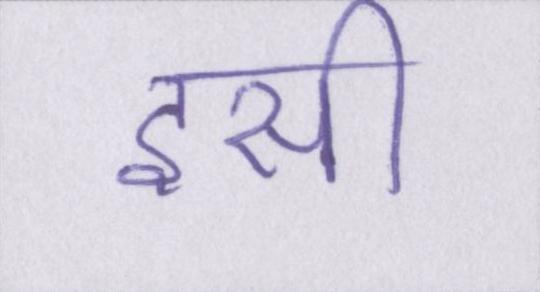 इसी